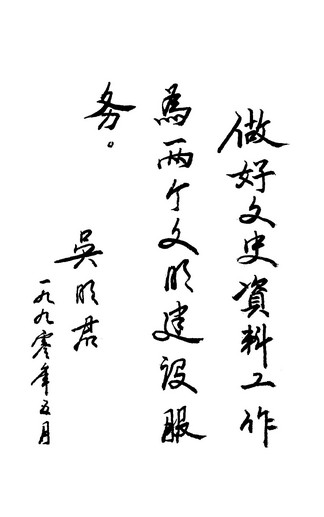 做好文史資料工作
為两个文明建设服
务。
吴明君
一九九零年五月